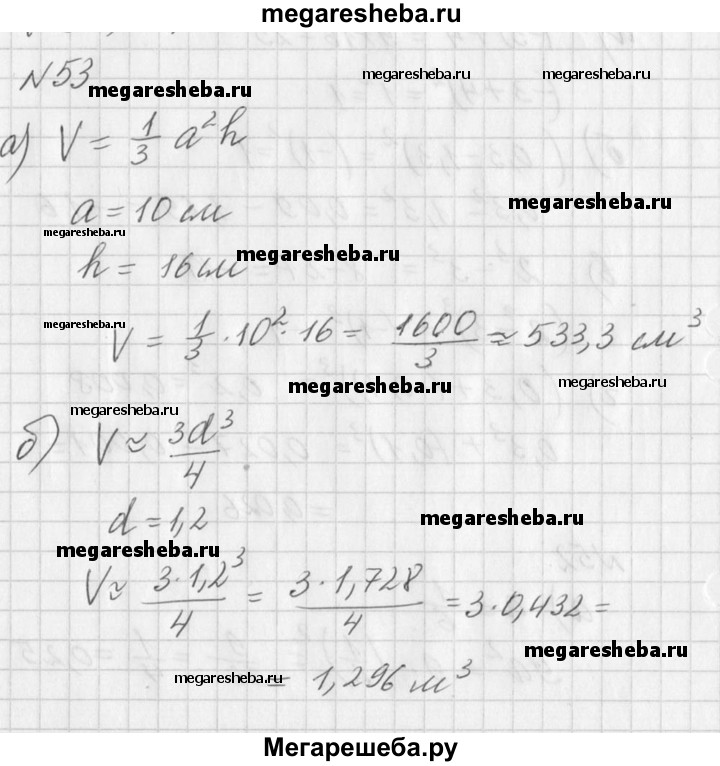 megaresheba.ru
№53
megaresheba.ru megaresheba.ru
а) V = 1/3 a²h
megaresheba.ru
a = 10 см
megaresheba.ru megaresheba.ru
h = 16 см
megaresheba.ru
V = 1/3 · 10² · 16 = 1600/3 ≈ 533,3 см³
megaresheba.ru megaresheba.ru
megaresheba.ru
б) V ≈ 3d³/4
d = 1,2
megaresheba.ru
megaresheba.ru
V ≈ 3·1,2³/4 = 3·1,728/4 = 3·0,432 =
megaresheba.ru
megaresheba.ru
= 1,296 м³
Мегарешеба.ру